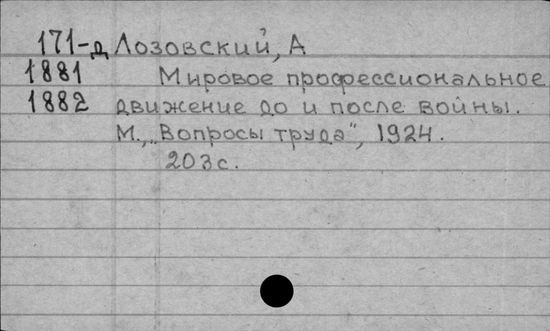 171-д Лозовский, А
1881 Мировое профессиональное
1882 движение до и после войны.
М., „Вопросы труда", 1924.
203 с.